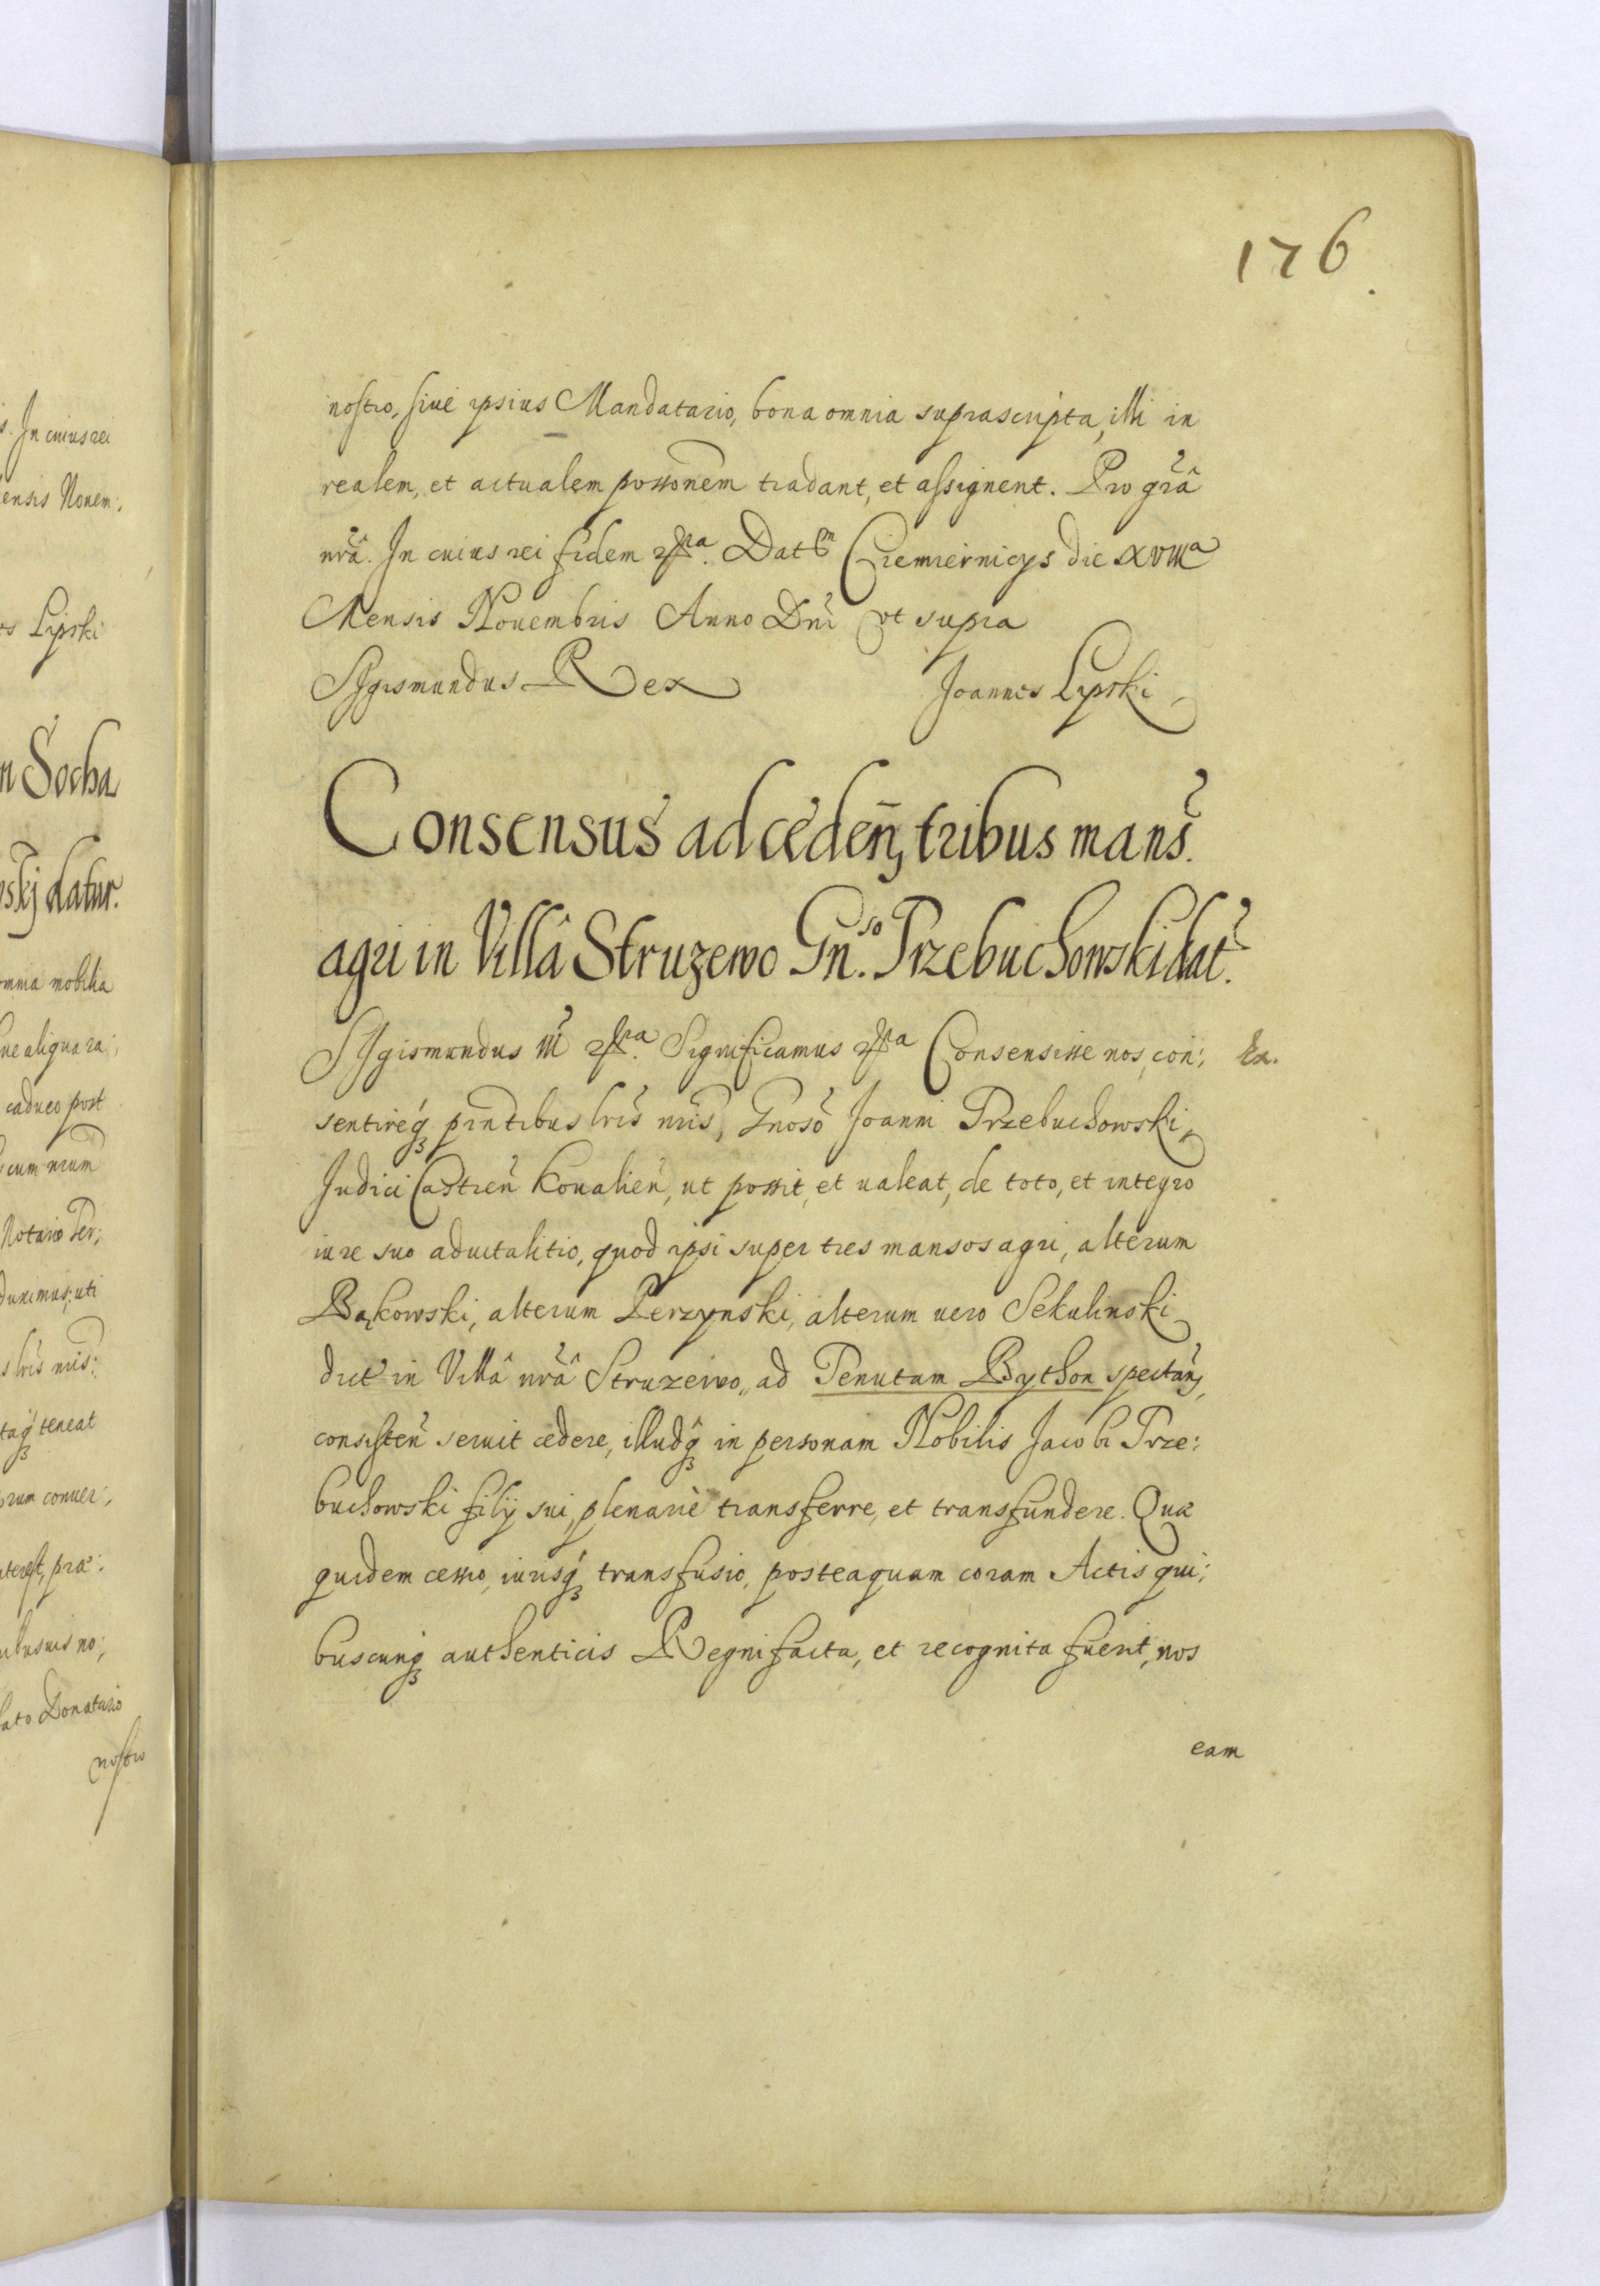 s. In cuius rei
ensis Nouem:
es Lipski
n Socha
wskj datur.
omnia mobilia
siue aliqua ra:
caduco post
cum nrum
Notario Ter:
duximus; uti
s lris nris:
taq teneat
rum conuer:
terest, præ:
ubusuis no:
fato Donatario
nostro
176
nostro, siue ipsius Mandatario, bona omnia suprascripta, illi in
realem, et actualem possonem tradant, et assignent. Pro grâ
nrâ. In cuius rei fidem &ra. Datm Ciemiernicys die XVIIIa
Mensis Nouembris Anno Dni vt supra
Sigismundus Rex Joannes Lipski
Consensus ad cedenȝ tribus mans.
agri in Villâ Struzewo Gn.so Przebuchowski dat.
Sigismundus III &ra. Significamus &ra Consensisse nos, con: Ex.
sentireq pntibus lris nris, Gnoso Joanni Przebuchowski,
Judici Castren Kovalien, ut possit, et ualeat, de toto, et integro
iure suo aduitalitio, quod ipsi super tres mansos agri, alterum
Bąkowski, alterum Perzynski, alterum uero Sekulinski
dict in Villâ nrâ Struzewo, ad Tenutam Bython spectanȝ,
consisten seruit cedere, illudq in personam Nobilis Jacobi Prze:
buchowski filij sui, plenariè transferre, et transfundere. Quæ
quidem cessio, iurisq transfusio, posteaquam coram Actis qui:
buscunq authenticis Regni facta, et recognita fuerit, nos
eam